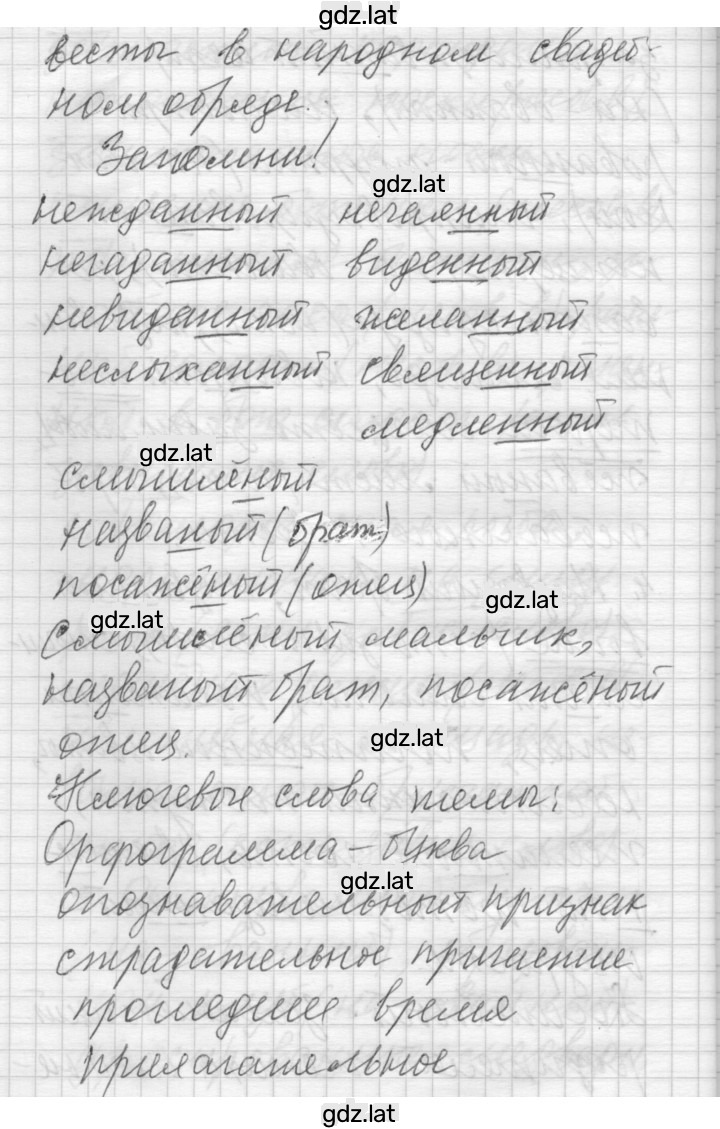 gdz.lat
весты в народном свадеб-
ном обряде.
Запомни!
gdz.lat
нежданный нечаянный
негаданный виденный
невиданный желанный
неслыханный священный
медленный
gdz.lat
смышлёный
названый (брат)
посажёный (отец)
gdz.lat
gdz.lat
Смышлёный мальчик,
названый брат, посажёный
отец.
gdz.lat
Ключевые слова темы:
Орфограмма – буква
gdz.lat
опознавательный признак
страдательное причастие
прошедшее время
прилагательное
gdz.lat